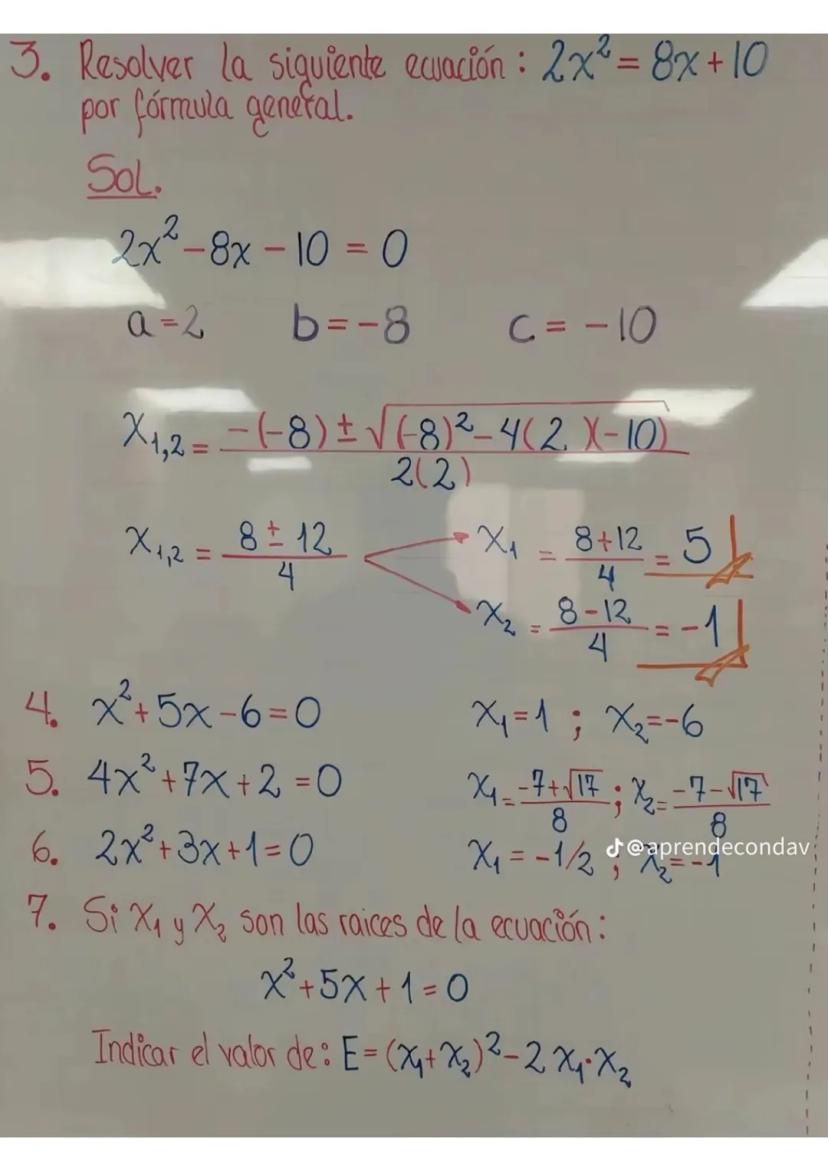 3. Resolver la siguiente ecuación: 2x² = 8x + 10
por fórmula general.
Sol.
2x² - 8x - 10 = 0
a = 2 b = -8 c = -10
x₁,₂ = (-(-8) ± √((-8)² - 4(2)(-10))) / 2(2)
x₁,₂ = (8 ± 12) / 4
x₁ = (8+12) / 4 = 5
x₂ = (8-12) / 4 = -1
4. x² + 5x - 6 = 0 x₁ = 1 ; x₂ = -6
5. 4x² + 7x + 2 = 0 x₁ = (-7+√17) / 8 ; x₂ = (-7-√17) / 8
6. 2x² + 3x + 1 = 0 x₁ = -1/2 ; x₂ = -1
@aprendecondav
7. Si x₁ y x₂ son las raices de la ecuación:
x² + 5x + 1 = 0
Indicar el valor de: E = (x₁ + x₂)² - 2 x₁·x₂